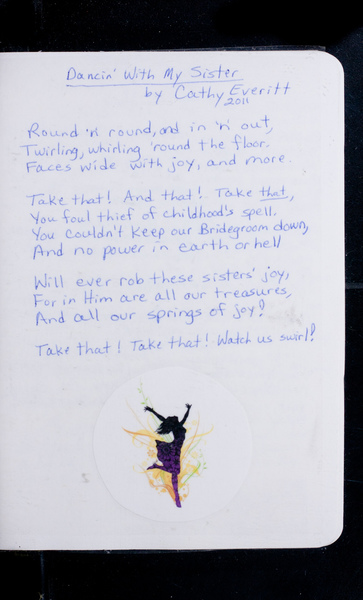 Dancin' With My Sister
by Cathy Everitt
2011
Round 'n' round, and in 'n' out,
Twirling, whirling 'round the floor.
Faces wide with joy, and more.
Take that! And that! Take that,
You foul thief of childhood's spell.
You couldn't keep our Bridegroom down,
And no power in earth or hell
Will ever rob these sisters' joy,
For in Him are all our treasures,
And all our springs of joy!
Take that! Take that! Watch us swirl!